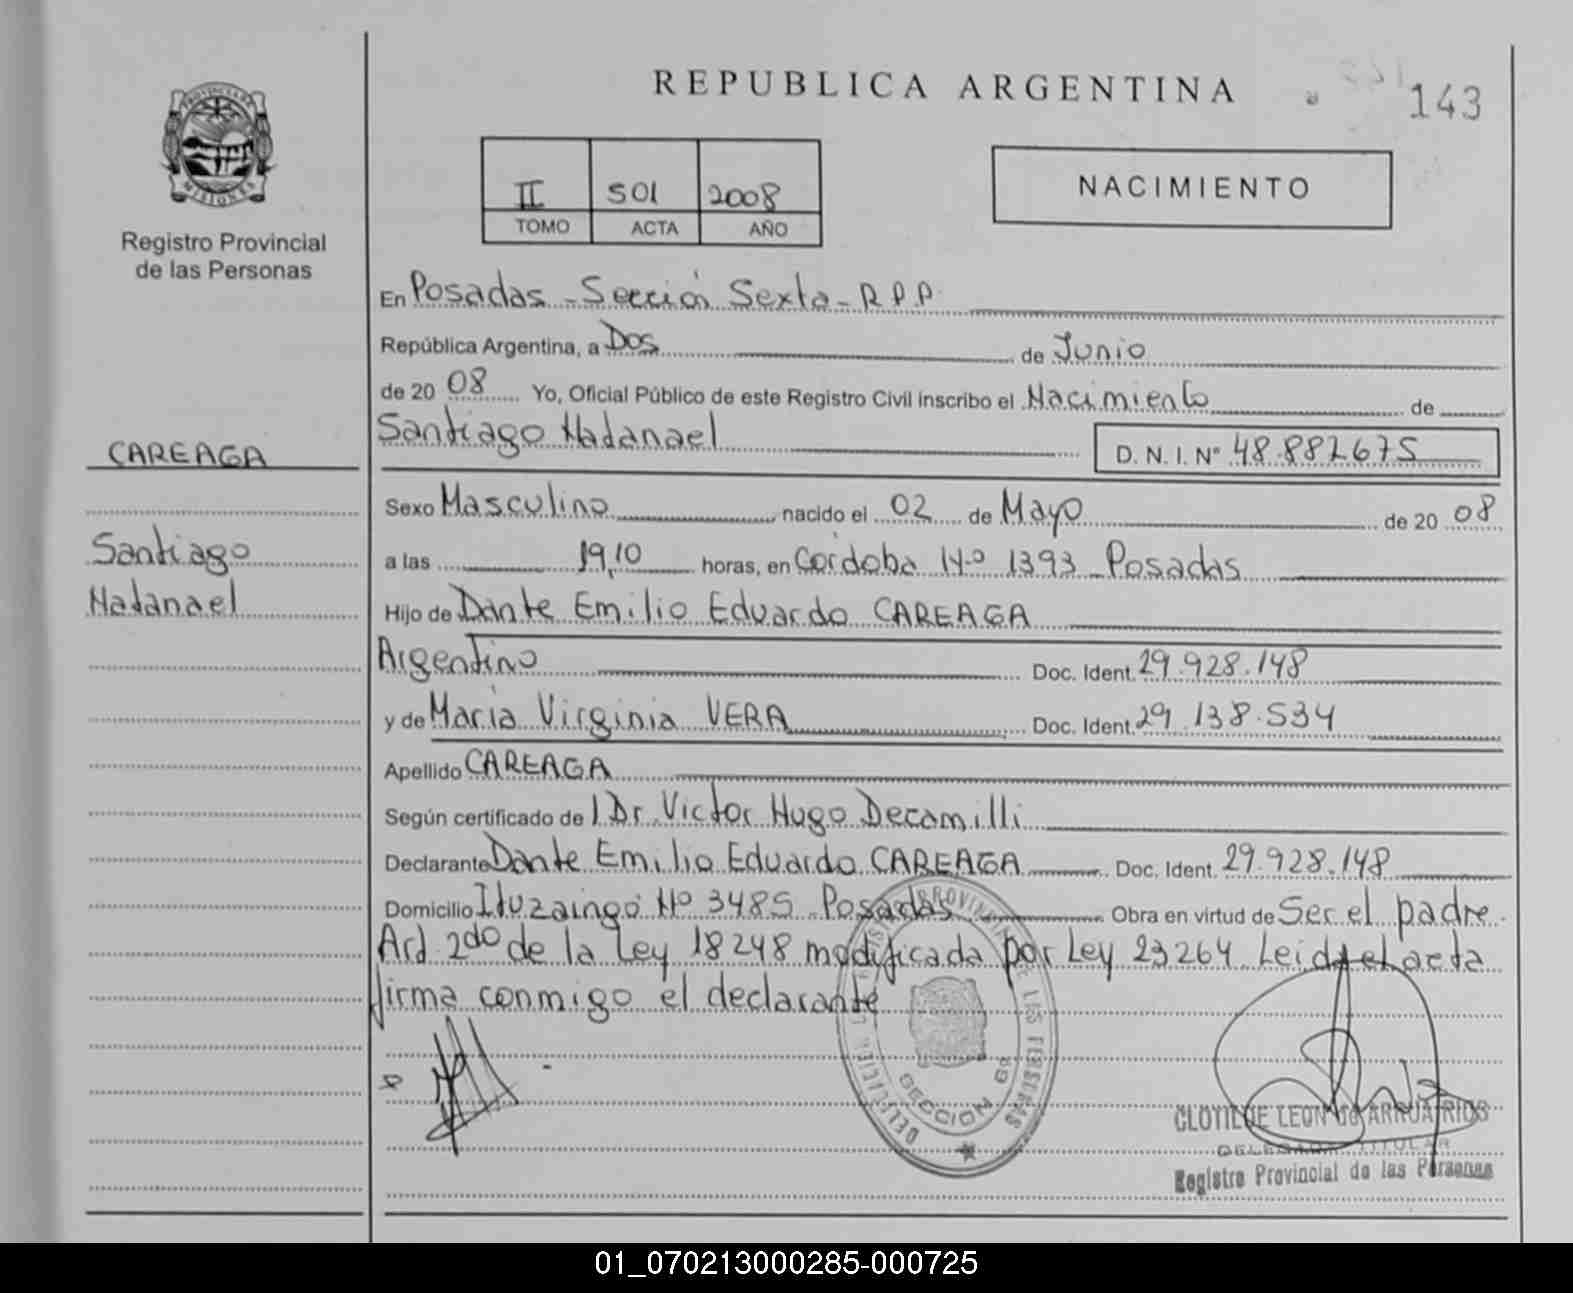 REPUBLICA ARGENTINA
143
PROVINCIA DE
MISIONES
Registro Provincial
de las Personas
II SO1 2008
TOMO ACTA AÑO
NACIMIENTO
En Posadas - Sección Sexta - R.P.P.
República Argentina, a Dos de Junio
de 20 08 Yo, Oficial Público de este Registro Civil inscribo el Nacimiento de
Santiago Natanael D. N. I. Nº 48.882675
CAREAGA
Santiago
Natanael
Sexo Masculino nacido el 02 de Mayo de 20 08
a las 19,10 horas, en Cordoba Nº 1393 Posadas
Hijo de Dante Emilio Eduardo CAREAGA
Argentino Doc. Ident. 29.928.148
y de María Virginia VERA Doc. Ident. 29.138.534
Apellido CAREAGA
Según certificado de l Dr. Victor Hugo Decamilli
Declarante Dante Emilio Eduardo CAREAGA Doc. Ident. 29.928.148
Domicilio Ituzaingó Nº 3485 Posadas Obra en virtud de Ser el padre.
Art 2do de la Ley 18248 modificada por Ley 23264 Leida el acta
firma conmigo el declarante
SECCION 6ª
CLOTILDE LEON de ARRUA RIOS
DELEGADA TITULAR
Registro Provincial de las Personas
01_070213000285-000725